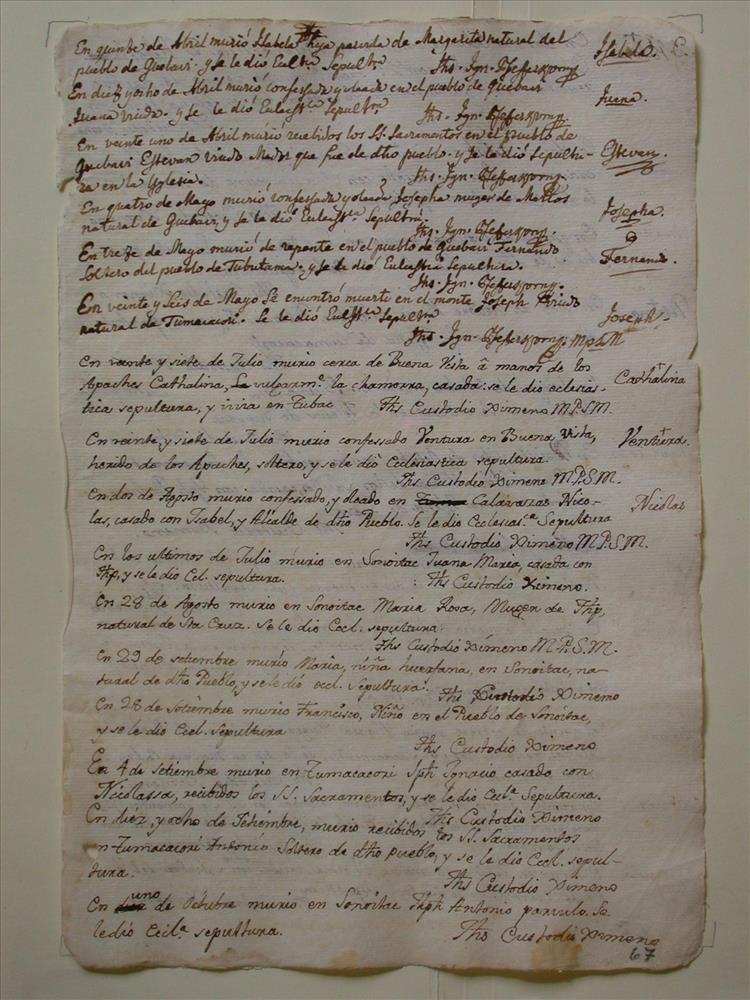 En quinse de Abril murió Isabela hija parvula de Margarita natural del Isabela.
pueblo de Guebavi. y se le dió Ecl.ca Sepult.ra Jhs. Ign. Pfefferkorn
En diez y ocho de Abril murió confessada y oleada en el pueblo de Guebavi
Juana viuda. y se le dió Eclesias.ca Sepult.ra Jhs. Ign. Pfefferkorn. Juana.
En veinte uno de Abril murió recebidos los SS. Sacramentos en el pueblo de
Guebavi Estevan viudo Mador que fue de dho pueblo. y se le dió Sepultu- Estevan.
ra en la Yglesia. Jhs. Ign. Pfefferkorn.
En quatro de Mayo murió confessada y oleada Josepha muger de Marcos
natural de Guebavi, y se le dió Sepultura. Josepha.
Jhs. Ign. Pfefferkorn.
En treze de Mayo murió de repente en el pueblo de Guebavi Fernando
Soltero del pueblo de Tubutama. y se le dió Sepultura. Fernando.
Jhs. Ign. Pfefferkorn.
En veinte y seis de Mayo se encontró muerto en el monte Joseph Viudo
natural de Tumacacori. Se le dió Sepult.ra Joseph
Jhs. Ign. Pfefferkorn. MpSM
En veinte y siete de Julio murio cerca de Buena Vista â manos de los
Apaches Cathalina, vulgarm.te la chamorra, casada: se le dio eclesias- Cathalina
tica sepultura, y vivia en Tubac Jhs Custodio Ximeno M.P.S.M.
En veinte, y siete de Julio murio confessado Ventura en Buena Vista, Ventura.
herido de los Apaches, soltero, y se le dió Ecclesiastica sepultura.
Jhs Custodio Ximeno M.P.S.M.
En dos de Agosto murio confessado, y oleado en Calavazas Nico- Nicolas
las, casado con Isabel, y Alcalde de dho Pueblo. Se le dió Ecclesias.ca Sepultura
Jhs Custodio Ximeno M.P.S.M.
En los ultimos de Julio murio en Sonoitac Juana Maria, casada con
Jhp, y se le dio Ecl. sepultura. Jhs Custodio Ximeno.
En 28 de Agosto murio en Sonoitac Maria Rosa, Muger de Jhp,
natural de Sta Cruz. Se le dió Eccl. sepultura.
Jhs Custodio Ximeno M.P.S.M.
En 29 de setiembre murio Maria, niña huerfana, en Sonoitac, na-
tural de dho Pueblo, y se le dió eccl. sepultura. Jhs Custodio Ximeno
En 28 de Setiembre murio Francisco, Niño en el Pueblo de Sonoitac,
y se le dió Eccl. sepultura
Jhs Custodio Ximeno
En 4 de Setiembre murio en Tumacacori Jph Ignacio casado con
Nicolassa, recibidos los SS. Sacramentos, y se le dió Ecc.la Sepultura.
Jhs Custodio Ximeno
En diez, y ocho de Setiembre, murio recibidos los SS. Sacramentos
en Tumacacori Antonio Soltero de dho pueblo, y se le dió Eccl. sepul-
tura. Jhs Custodio Ximeno
En uno de Octubre murio en Sonoitac Jhph Antonio parvulo. Se
le dió Eccl.a sepultura. Jhs Custodio Ximeno
67